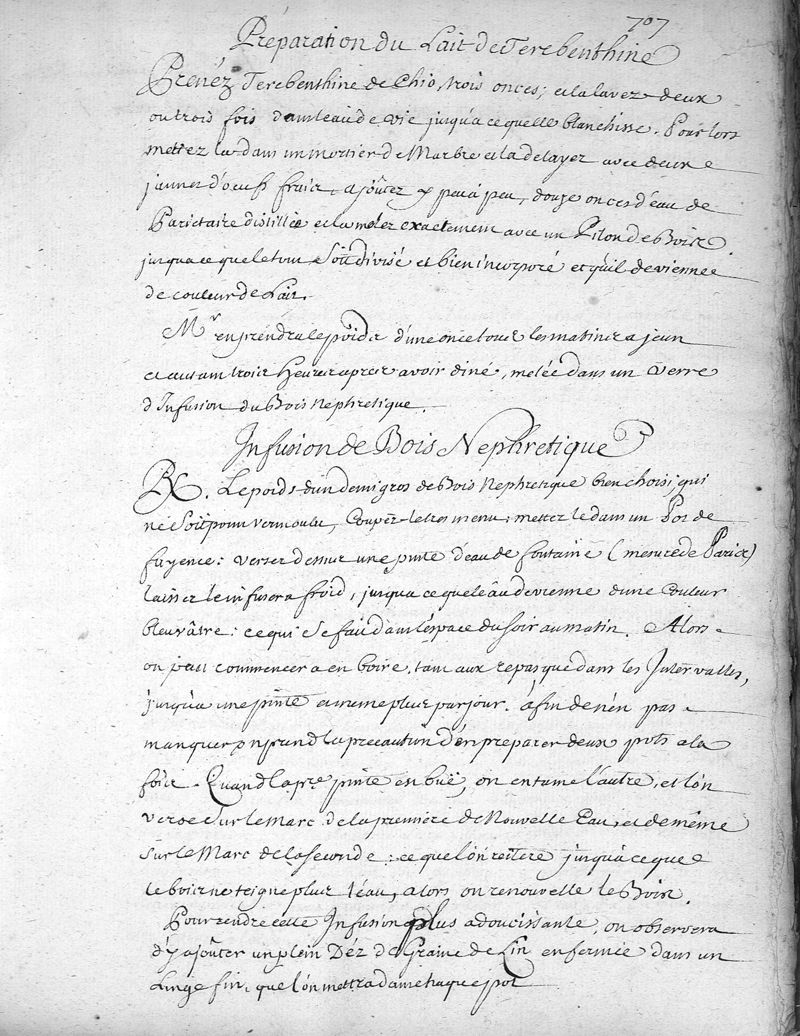 707
Preparation du Lait de Terebenthine
Prenéz Terebenthine de Chio, trois onces; et la lavez deux
ou trois fois dans leau de vie jusqu'a ce quelle blanchisse. Pour lors
mettez la dans un mortier de Marbre et la delayez avec deux
jaunes d'oeufs frais, ajoûtez y peu a peu, douze onces d'eau de
Parietaire distillée et la melez exactement avec un Pilon de Bois
jusqua ce que le tout soit divisé et bien incorporé et qu'il devienne
de couleur de Lait.
Mr en prendra le poids d'une once tous les matins a jeun
et autant trois Heures apres avoir diné, melée dans un Verre
d'Infusion du Bois Nephretique.
Infusion de Bois Nephretique
Rx. Le poids d'un demi gros de Bois Nephretique bien choisi, qui
ne soit point vermoulu, Coupez-le tres menu; mettez le dans un Pot de
fayence: versez dessus une pinte d'eau de fontaine (mesure de Paris)
laissez le infuser a froid, jusqua ce que leau devienne d'une Couleur
bleuvâtre: ce qui se fait dans l'espace du soir au matin. Alors
on peut commencer a en boire, tant aux repas que dans les Intervalles,
jusqu'a une pinte et meme plus par jour. afin de n'en pas
manquer on prend la precaution d'en preparer deux pots a la
fois. Quand la pre pinte est buë, on entame l'autre, et l'on
verse sur le Marc de la premiere de Nouvelle Eau, et de même
sur le Marc de la seconde: ce que l'on reitere jusqu'a ce que
le bois ne teigne plus l'eau, alors on renouvelle le Bois.
Pour rendre cette Infusion plus adoucissante, on observera
d'y ajoûter un plein Déz de Graine de Lin enfermée dans un
Linge fin, que l'on mettra dans chaque pot